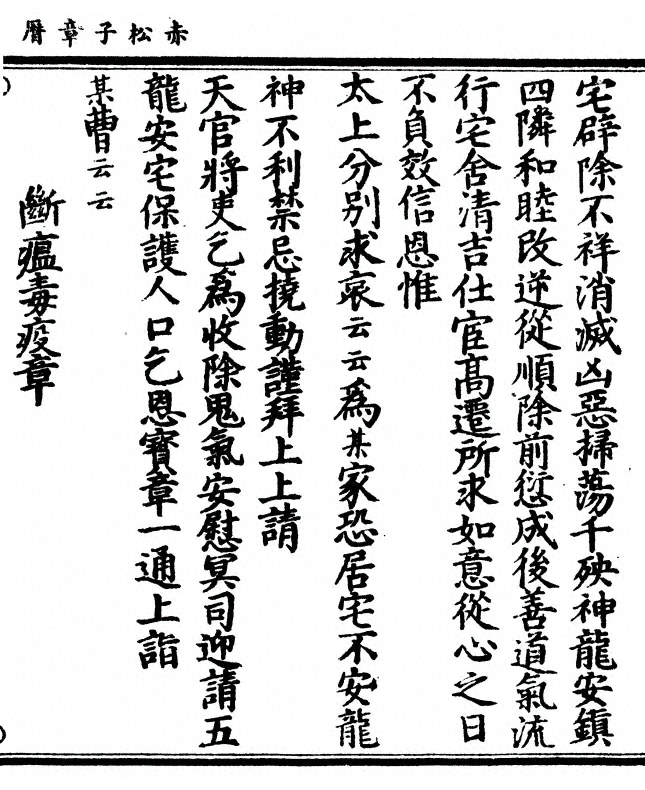 赤松子章曆
宅辟除不祥消滅凶惡掃蕩千殃神龍安鎮
四隣和睦改逆從順除前愆成後善道氣流
行宅舍清吉仕宦高遷所求如意從心之日
不負效信恩惟
太上分別求哀云云為某家恐居宅不安龍
神不利禁忌撓動謹拜上上請
天官將吏乞為收除鬼氣安慰冥司迎請五
龍安宅保護人口乞恩寶章一通上詣
某曹云云
斷瘟毒疫章